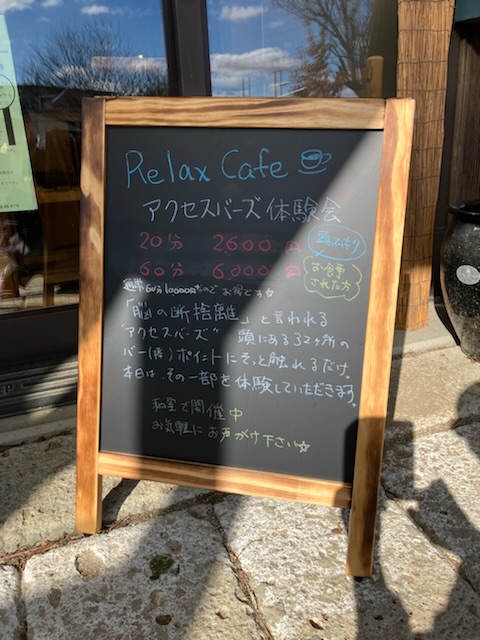 Relax Cafe
アクセスバーズ体験会
20分 2600円
60分 6,000円
お食事
された方
通常60分10000円なので お得です☆
「脳の断捨離」と言われる
"アクセスバーズ" 頭にある32ヶ所の
バー(棒)ポイントにそっと触れるだけ。
本日は、その一部を体験していただきます。
和室で開催中
お気軽にお声がけ下さい☆